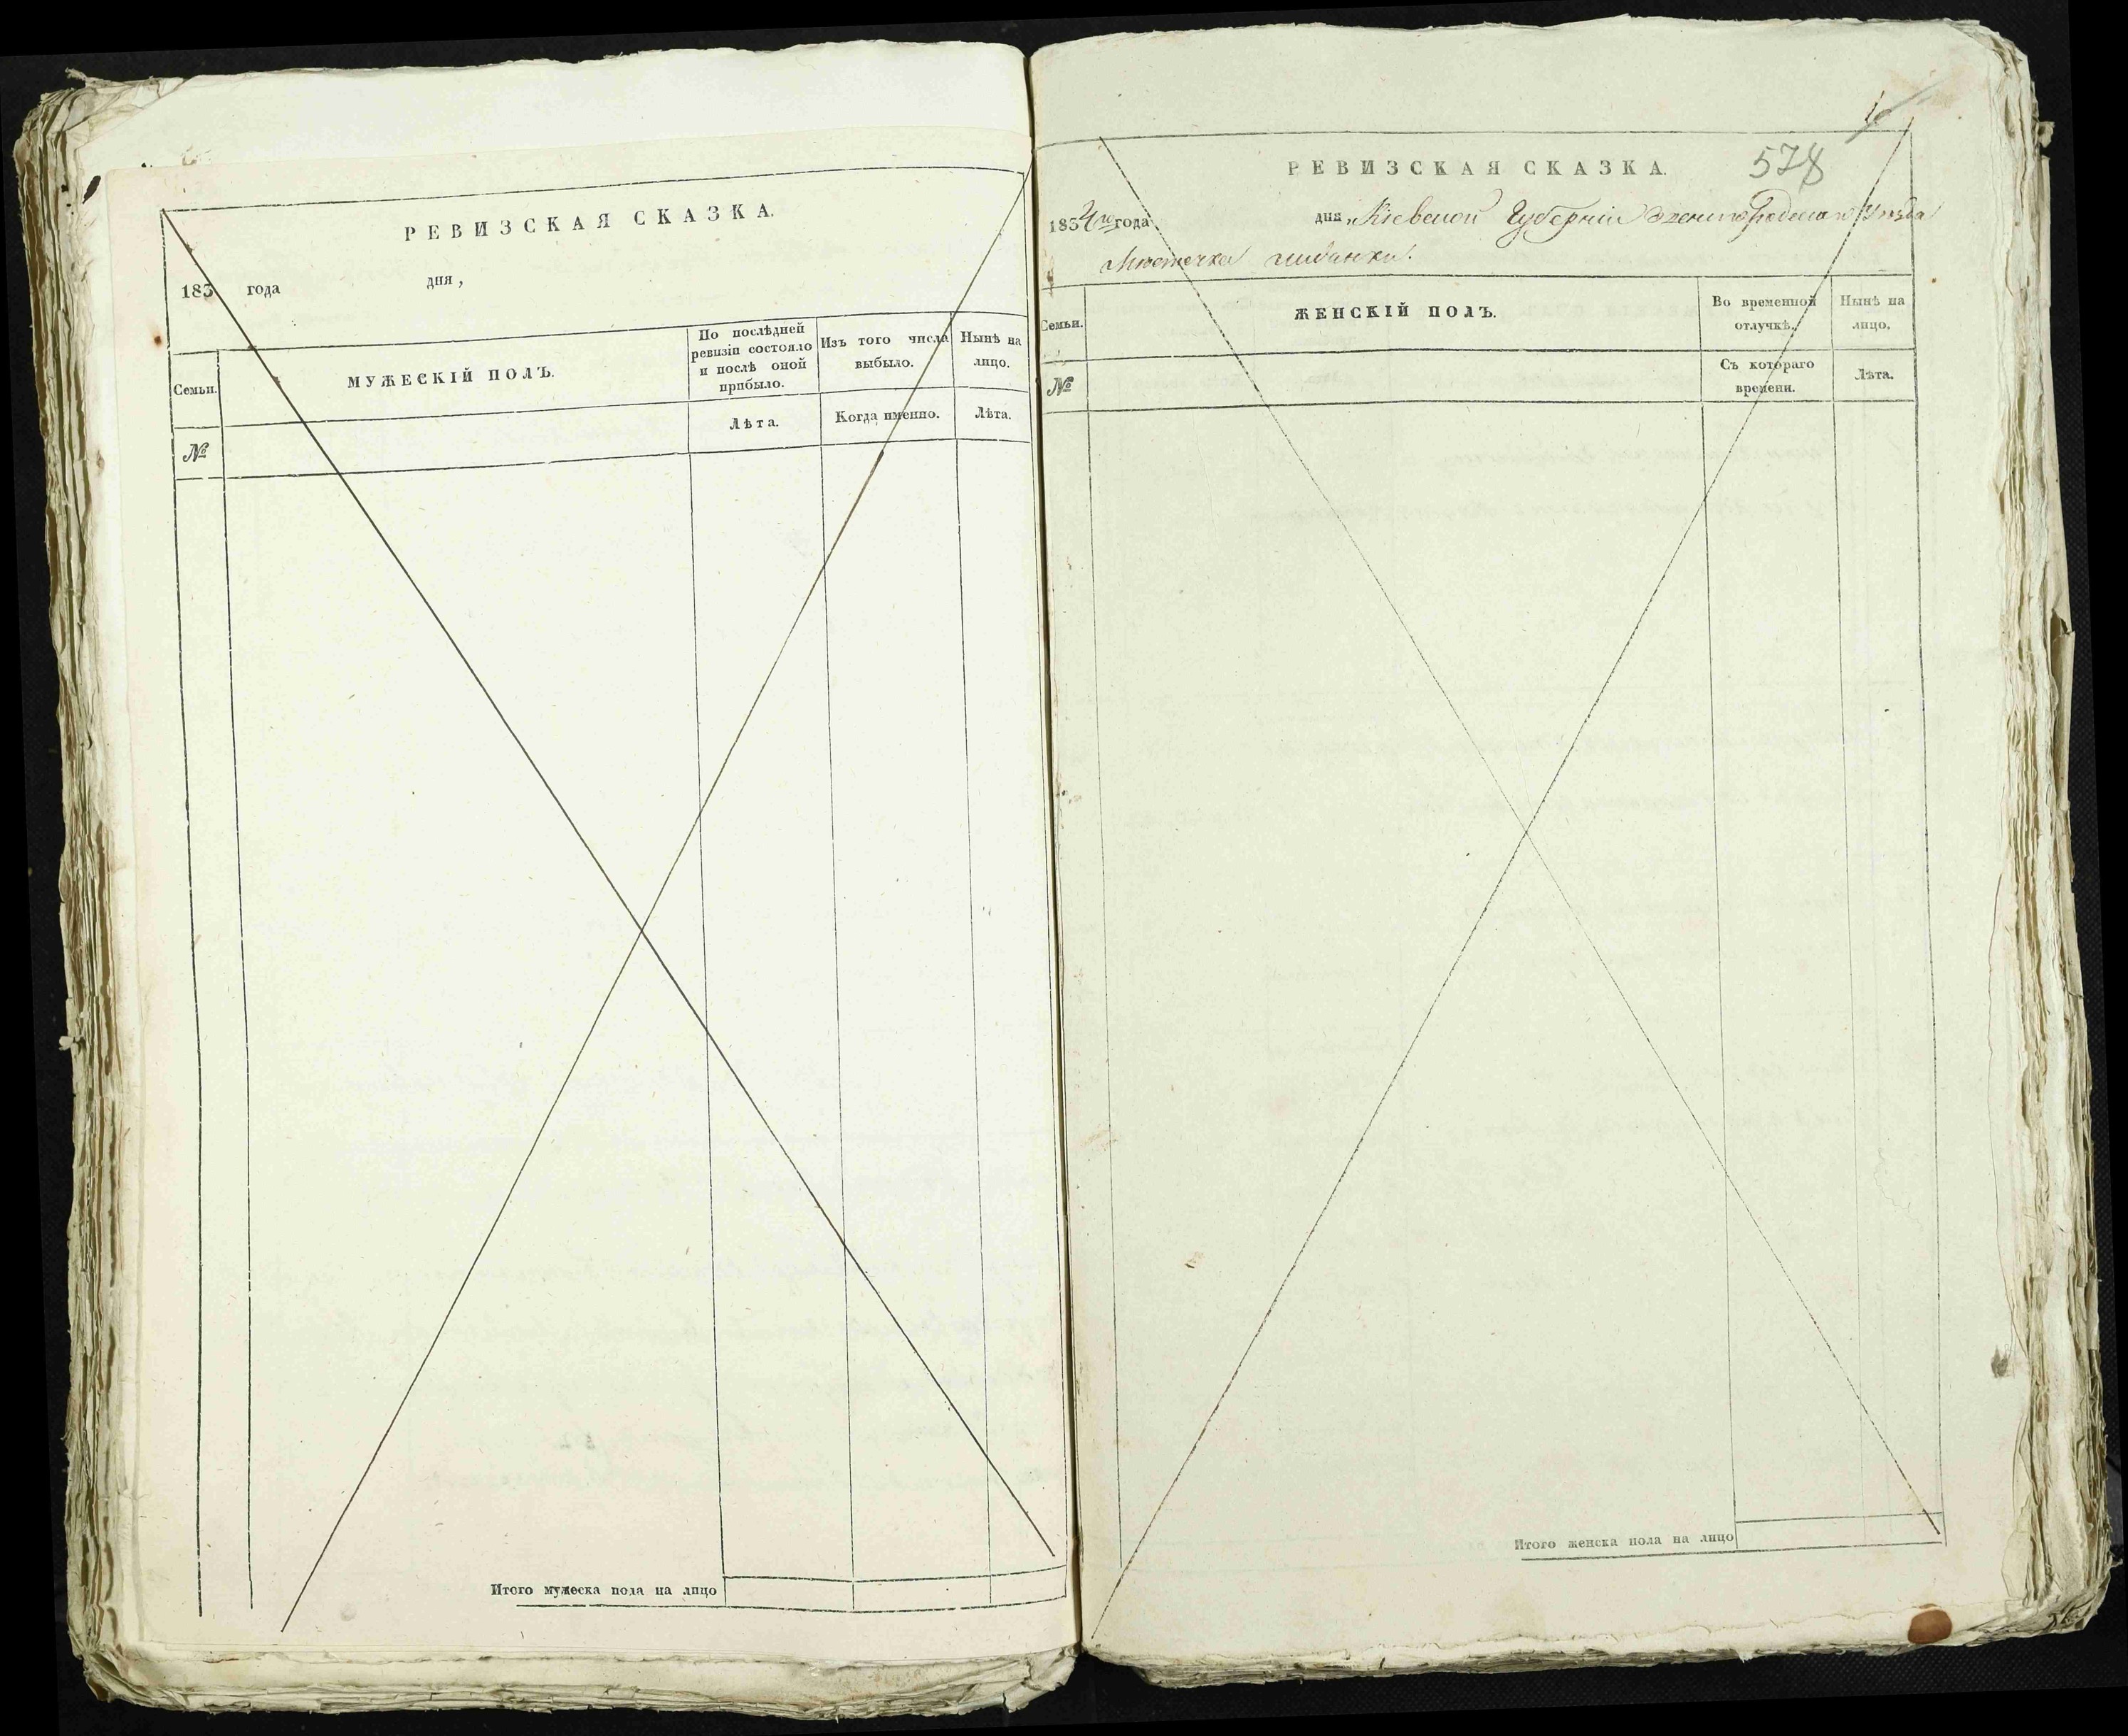 РЕВИЗСКАЯ СКАЗКА.
183 года дня,
Семьи.
МУЖЕСКІЙ ПОЛЪ.
По послѣдней ревизіи состояло и послѣ оной прибыло.
Изъ того числа выбыло.
Нынѣ на лицо.
№
Лѣта.
Когда именно.
Лѣта.
Итого мужеска пола на лицо
4
РЕВИЗСКАЯ СКАЗКА. 578
1834го года дня, Кіевской Губерніи Звенигородскаго Уѣзда
Мѣстечка
Семьи.
ЖЕНСКІЙ ПОЛЪ.
Во временной отлучкѣ.
Нынѣ на лицо.
№
Съ котораго времени.
Лѣта.
Итого женска пола на лицо